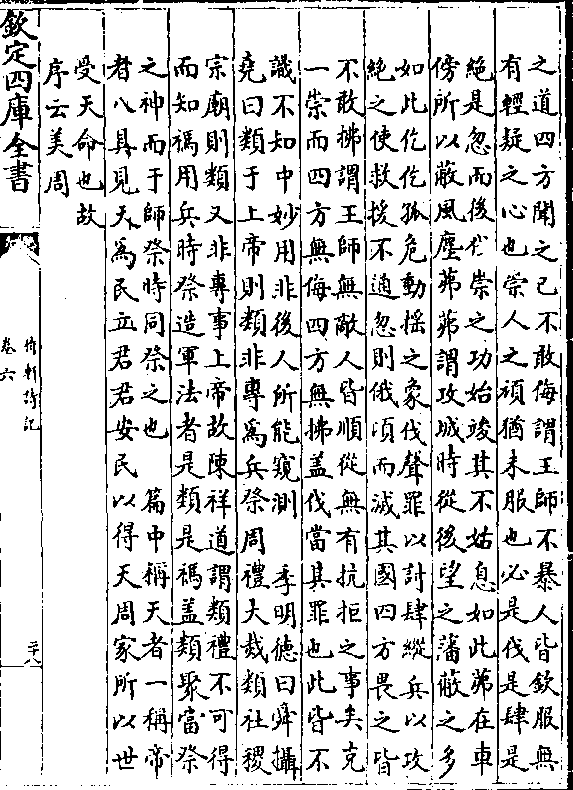 之道四方聞之已不敢侮謂王師不暴人皆欽服無
有輕疑之心也崇人之頑猶未服也必是伐是肆是
絶是忽而後伐崇之功始竣其不姑息如此茀在車
傍所以蔽風塵茀茀謂攻城時從後望之藩蔽之多
如此仡仡孤危動揺之象伐聲罪以討肆縱兵以攻
絶之使救援不通忽則俄頃而滅其國四方畏之皆
不敢拂謂王師無敵人皆順從無有抗拒之事矣克
一崇而四方無侮四方無拂盖伐當其罪也此皆不
識不知中妙用非後人所能窺測　季明徳曰舜攝
堯曰類于上帝則類非專為兵祭周禮大烖類社稷
宗廟則類又非專事上帝故陳祥道謂類禮不可得
而知禡用兵時祭造軍法者是類是禡盖類聚當祭
之神而于師祭時同祭之也　篇中稱天者一稱帝
者八具見天為民立君君安民以得天周家所以世
受天命也故
序云美周
欽定四庫全書
待軒詩記
卷六
二十八